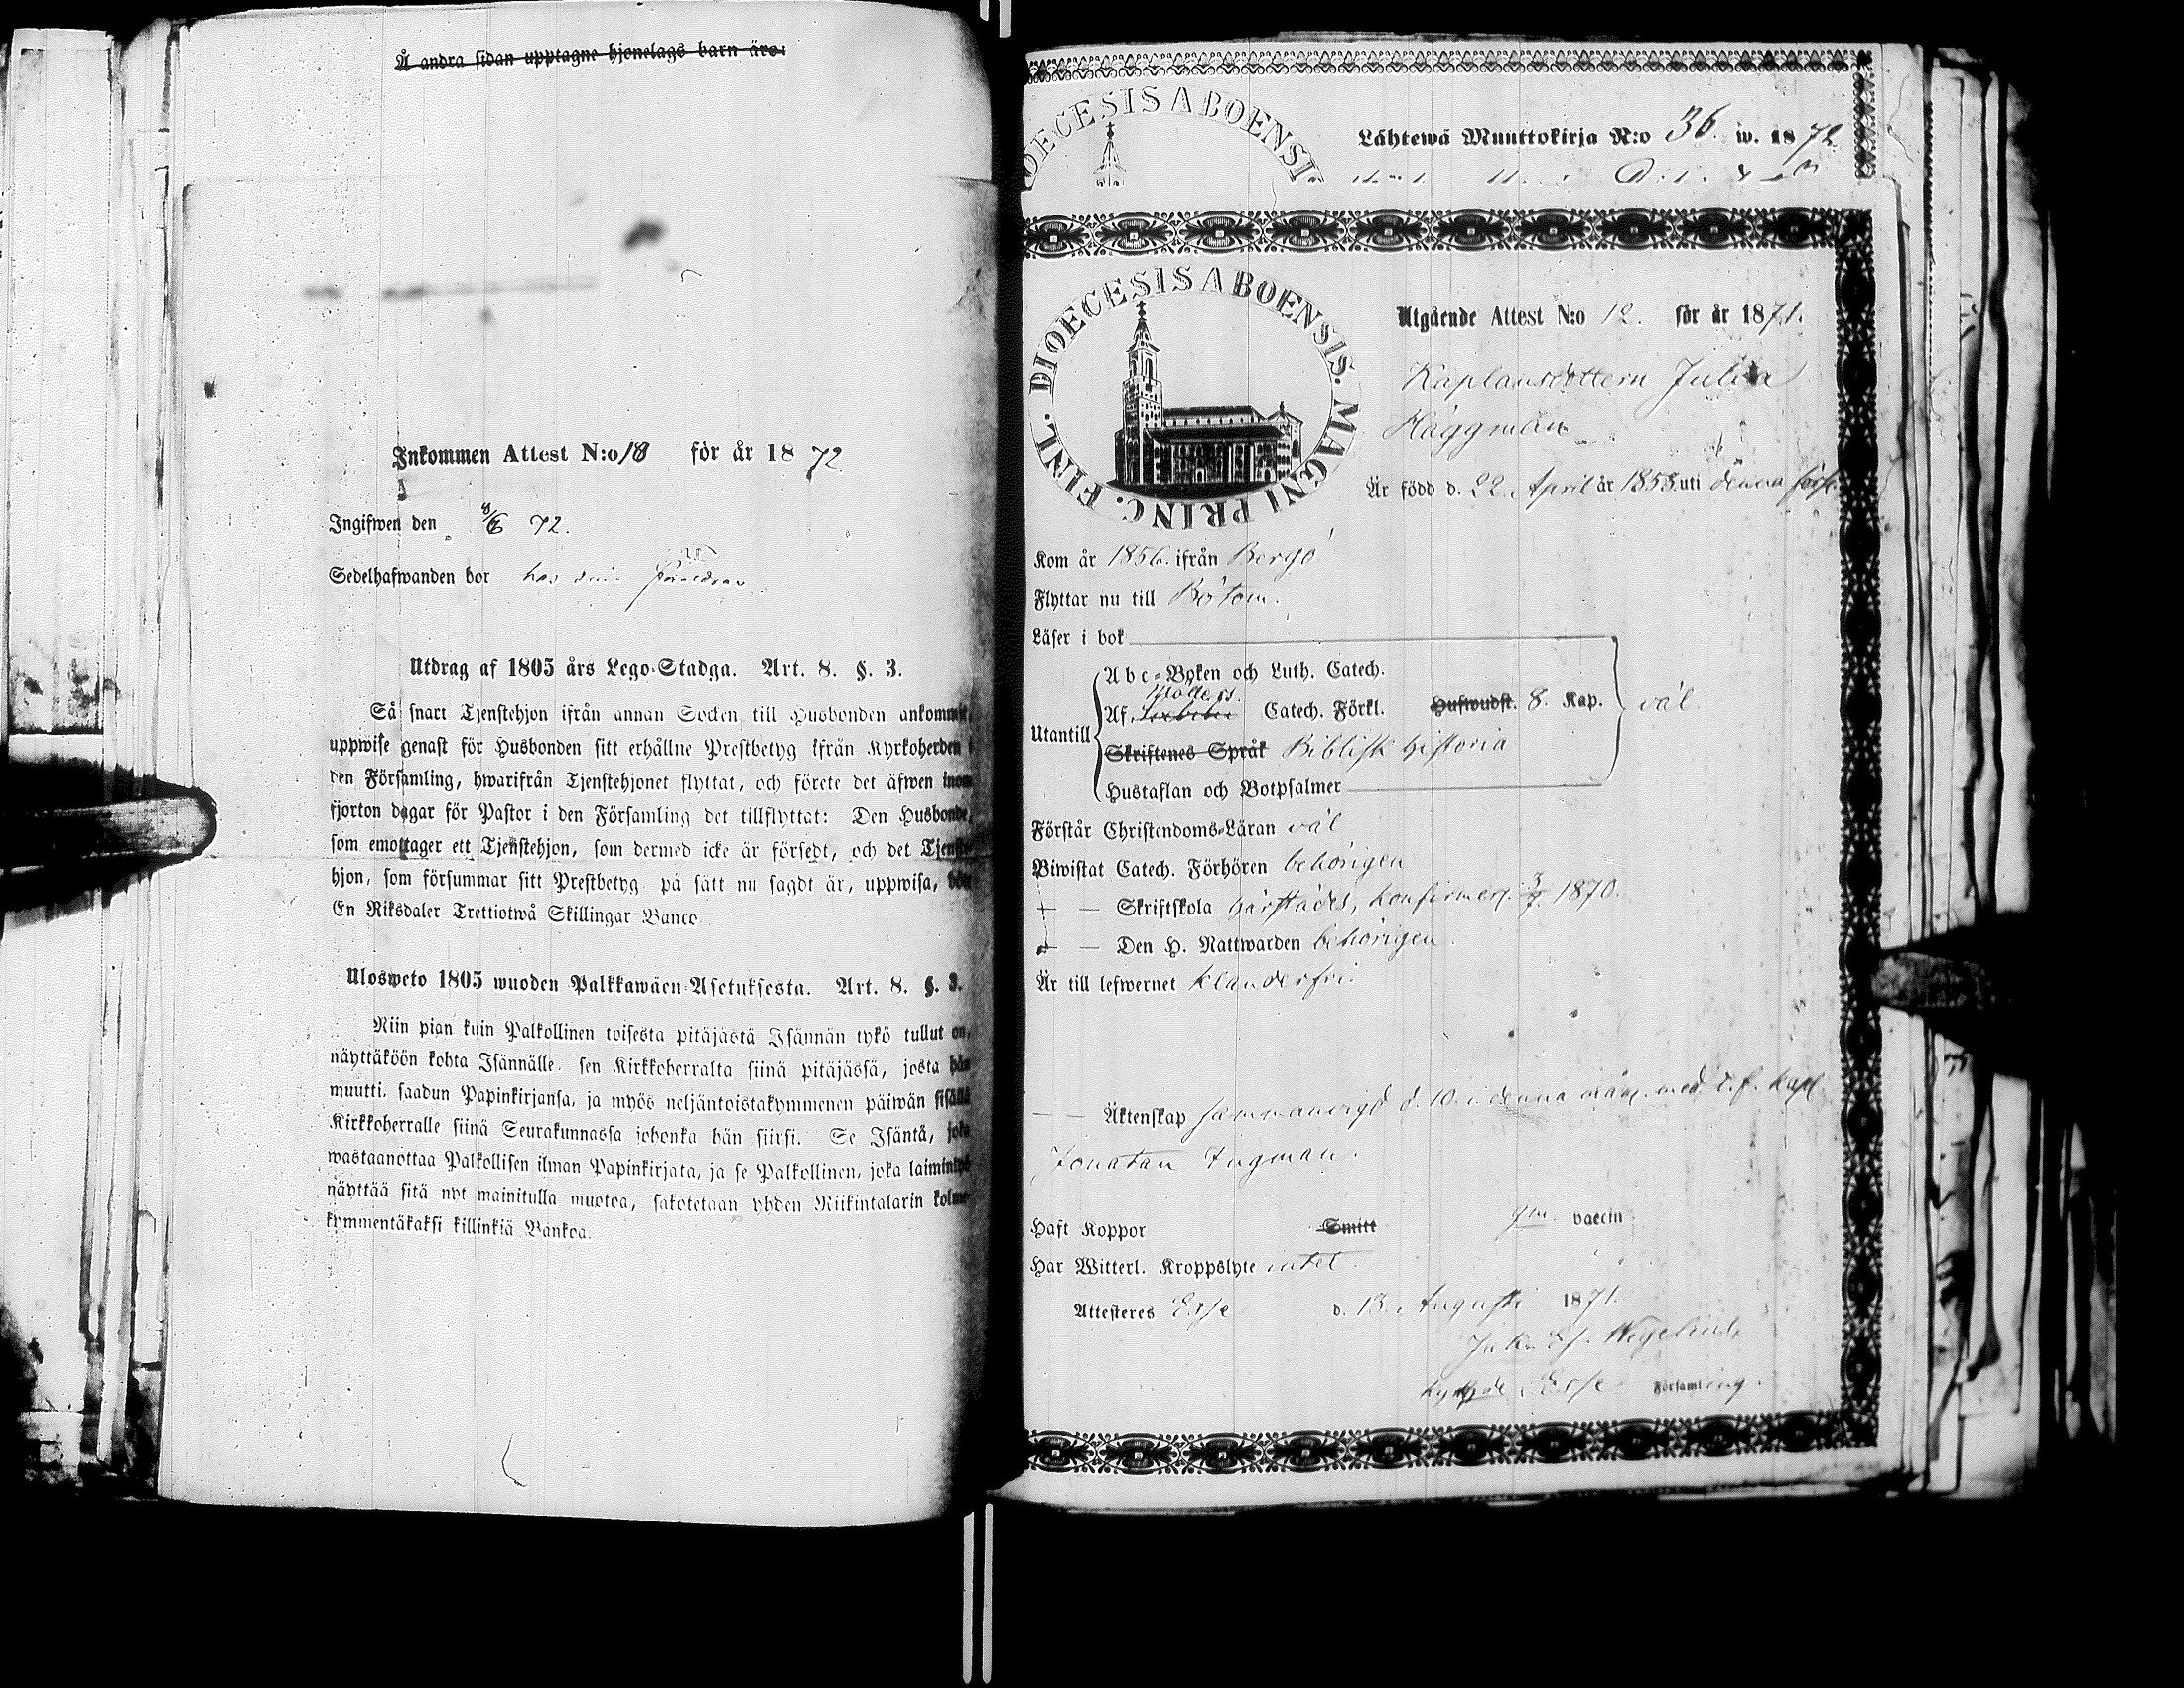 Å andra sidan upptagne hjonelags barn äro:
Inkommen Attest N:o 18 för år 1872
Ingifwen den 8/6 72.
Sedelhafwanden bor hos sina föräldrar
Utdrag af 1805 års Lego-Stadga. Art. 8. §. 3.
Så snart Tjenstehjon ifrån annan Socken till Husbonden ankommit,
uppwise genast för Husbonden sitt erhållne Prestbetyg ifrån Kyrkoherden i
den Församling, hwarifrån Tjenstehjonet flyttat, och förete det äfwen inom
fjorton dagar för Pastor i den Församling det tillflyttat: Den Husbonde,
som emottager ett Tjenstehjon, som dermed icke är försedt, och det Tjenste-
hjon, som försummar sitt Prestbetyg på sätt nu sagdt är, uppwisa, böte
En Riksdaler Trettiotwå Skillingar Banco
Ulosweto 1805 wuoden Palkkawäen Asetuksesta. Art. 8. §. 3.
Niin pian kuin Palkollinen toisesta pitäjästä Isännän tykö tullut on,
näyttäköön kohta Isännälle, sen Kirkkoherralta siinä pitäjässä, josta hän
muutti, saadun Papinkirjansa, ja myös neljäntoistakymmenen päiwän sisällä
Kirkkoherralle siinä Seurakunnassa johonka hän siirsi. Se Isäntä, joka
wastaanottaa Palkollisen ilman Papinkirjata, ja se Palkollinen, joka laiminlyö
näyttää sitä nyt mainitulla muotoa, sakotetaan yhden Riikintalarin kolme-
kymmentäkaksi killinkiä Bankoa.
DIOECESIS ABOENSI
Lähtewä Muuttokirja N:o 36. w. 1872
DIOECESIS ABOENSIS. MAGNI PRINC. FINL.
Utgående Attest N:o 12. för år 1871.
Kaplansdottern Julia
Häggman
Är född d. 22 April år 1853 uti denna förs.
Kom år 1856. ifrån Bergö
Flyttar nu till Bötom.
Läser i bok
Abc-Boken och Luth. Catech.
Utantill Af Catech. Förkl. Hufwudst. 8. Kap. väl
Skriftenes Språk Biblisk historia
Hustaflan och Botpsalmer
Förstår Christendoms-Läran väl
Biwistat Catech. Förhören behörigen
— — Skriftskola härstädes, 1870.
— — Den H. Nattwarden behörigen.
Är till lefwernet klanderfri.
— Äktenskap sammanvigd d. 10. i denna mån. med t. f. kapl.
Jonatan Ingman.
Haft Koppor Smitt gm. vaccin
Har Witterl. Kroppslyte intet.
Attesteres Esse d. 13. Augusti 1871.
Wegelius
Esse Församling.